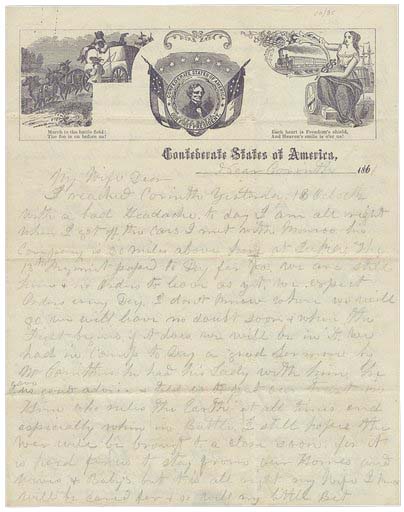 March to the battle field;
The foe is on before us!
CONFEDERATE STATES OF AMERICA
Each heart is Freedom's shield,
And Heaven's smile is o'er us!
Confederate States of America,
Near Corinth 186
My Wife Dear
I reached Corinth Yesterday
with a bad Headache to day I am all right
when I got off the Cars I met with his
Company is 30 miles above here at
13th Regment to Day for we are still
here & no Orders to leave as yet, we expect
Orders every Day I dont know where we will
go we will have no doubt soon & when the
begins if it does we will be in it we
had in Camp to Day a good Sermon by
Mr he had his Lady with him he
gave good advice & that is to put our trust in
Him who rules the Earth at all times and
especially when in Battle, I still hope the
War will be brought to a close soon for it
is hard for us to stay from our Homes and
& Babys but tis all right my Wife I
will be cared for & so will my little Bet